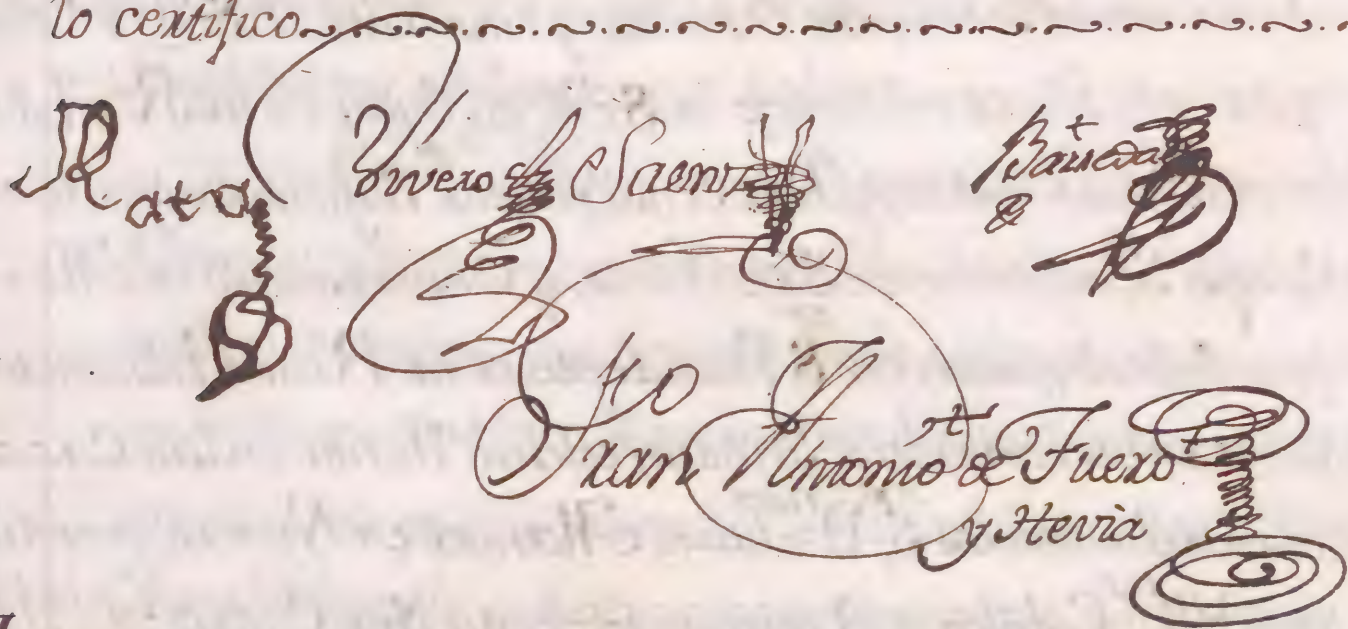 lo certifico
Rata Vivero Saenz Barreda
Franco Antonio de Fuero
y Hevia